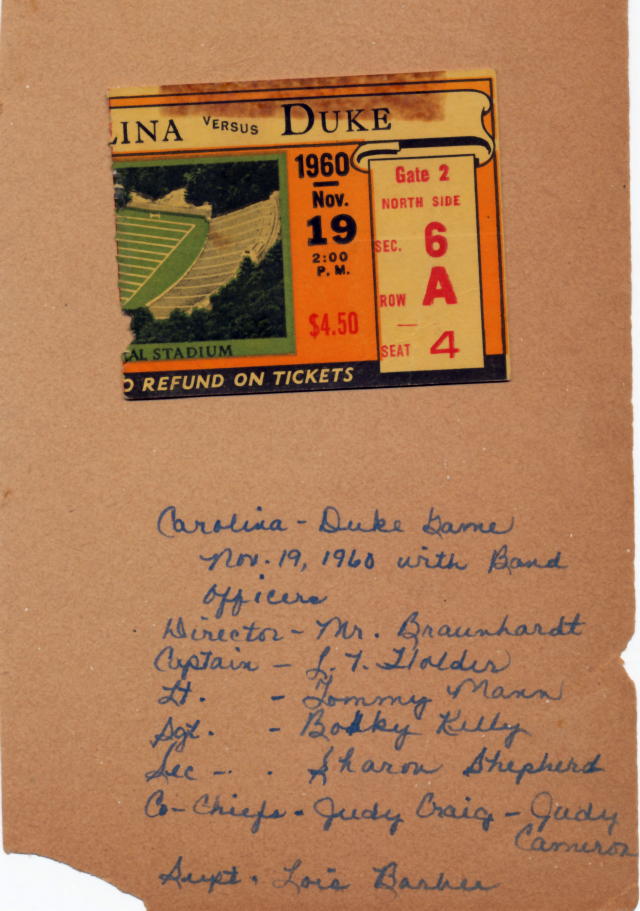 LINA VERSUS DUKE
1960
Nov.
19
2:00
P. M.
$4.50
Gate 2
NORTH SIDE
SEC. 6
ROW A
SEAT 4
AL STADIUM
O REFUND ON TICKETS
Carolina - Duke Game
Nov. 19, 1960 with Band
Officers
Director - Mr. Braunhardt
Captain - J. T. Holder
Lt. - Tommy Mann
Sgt. - Bobby Kelly
Sec - . Sharon Shepherd
Co-Chiefs - Judy Craig - Judy
Cameron
Supt. Lois Barbee